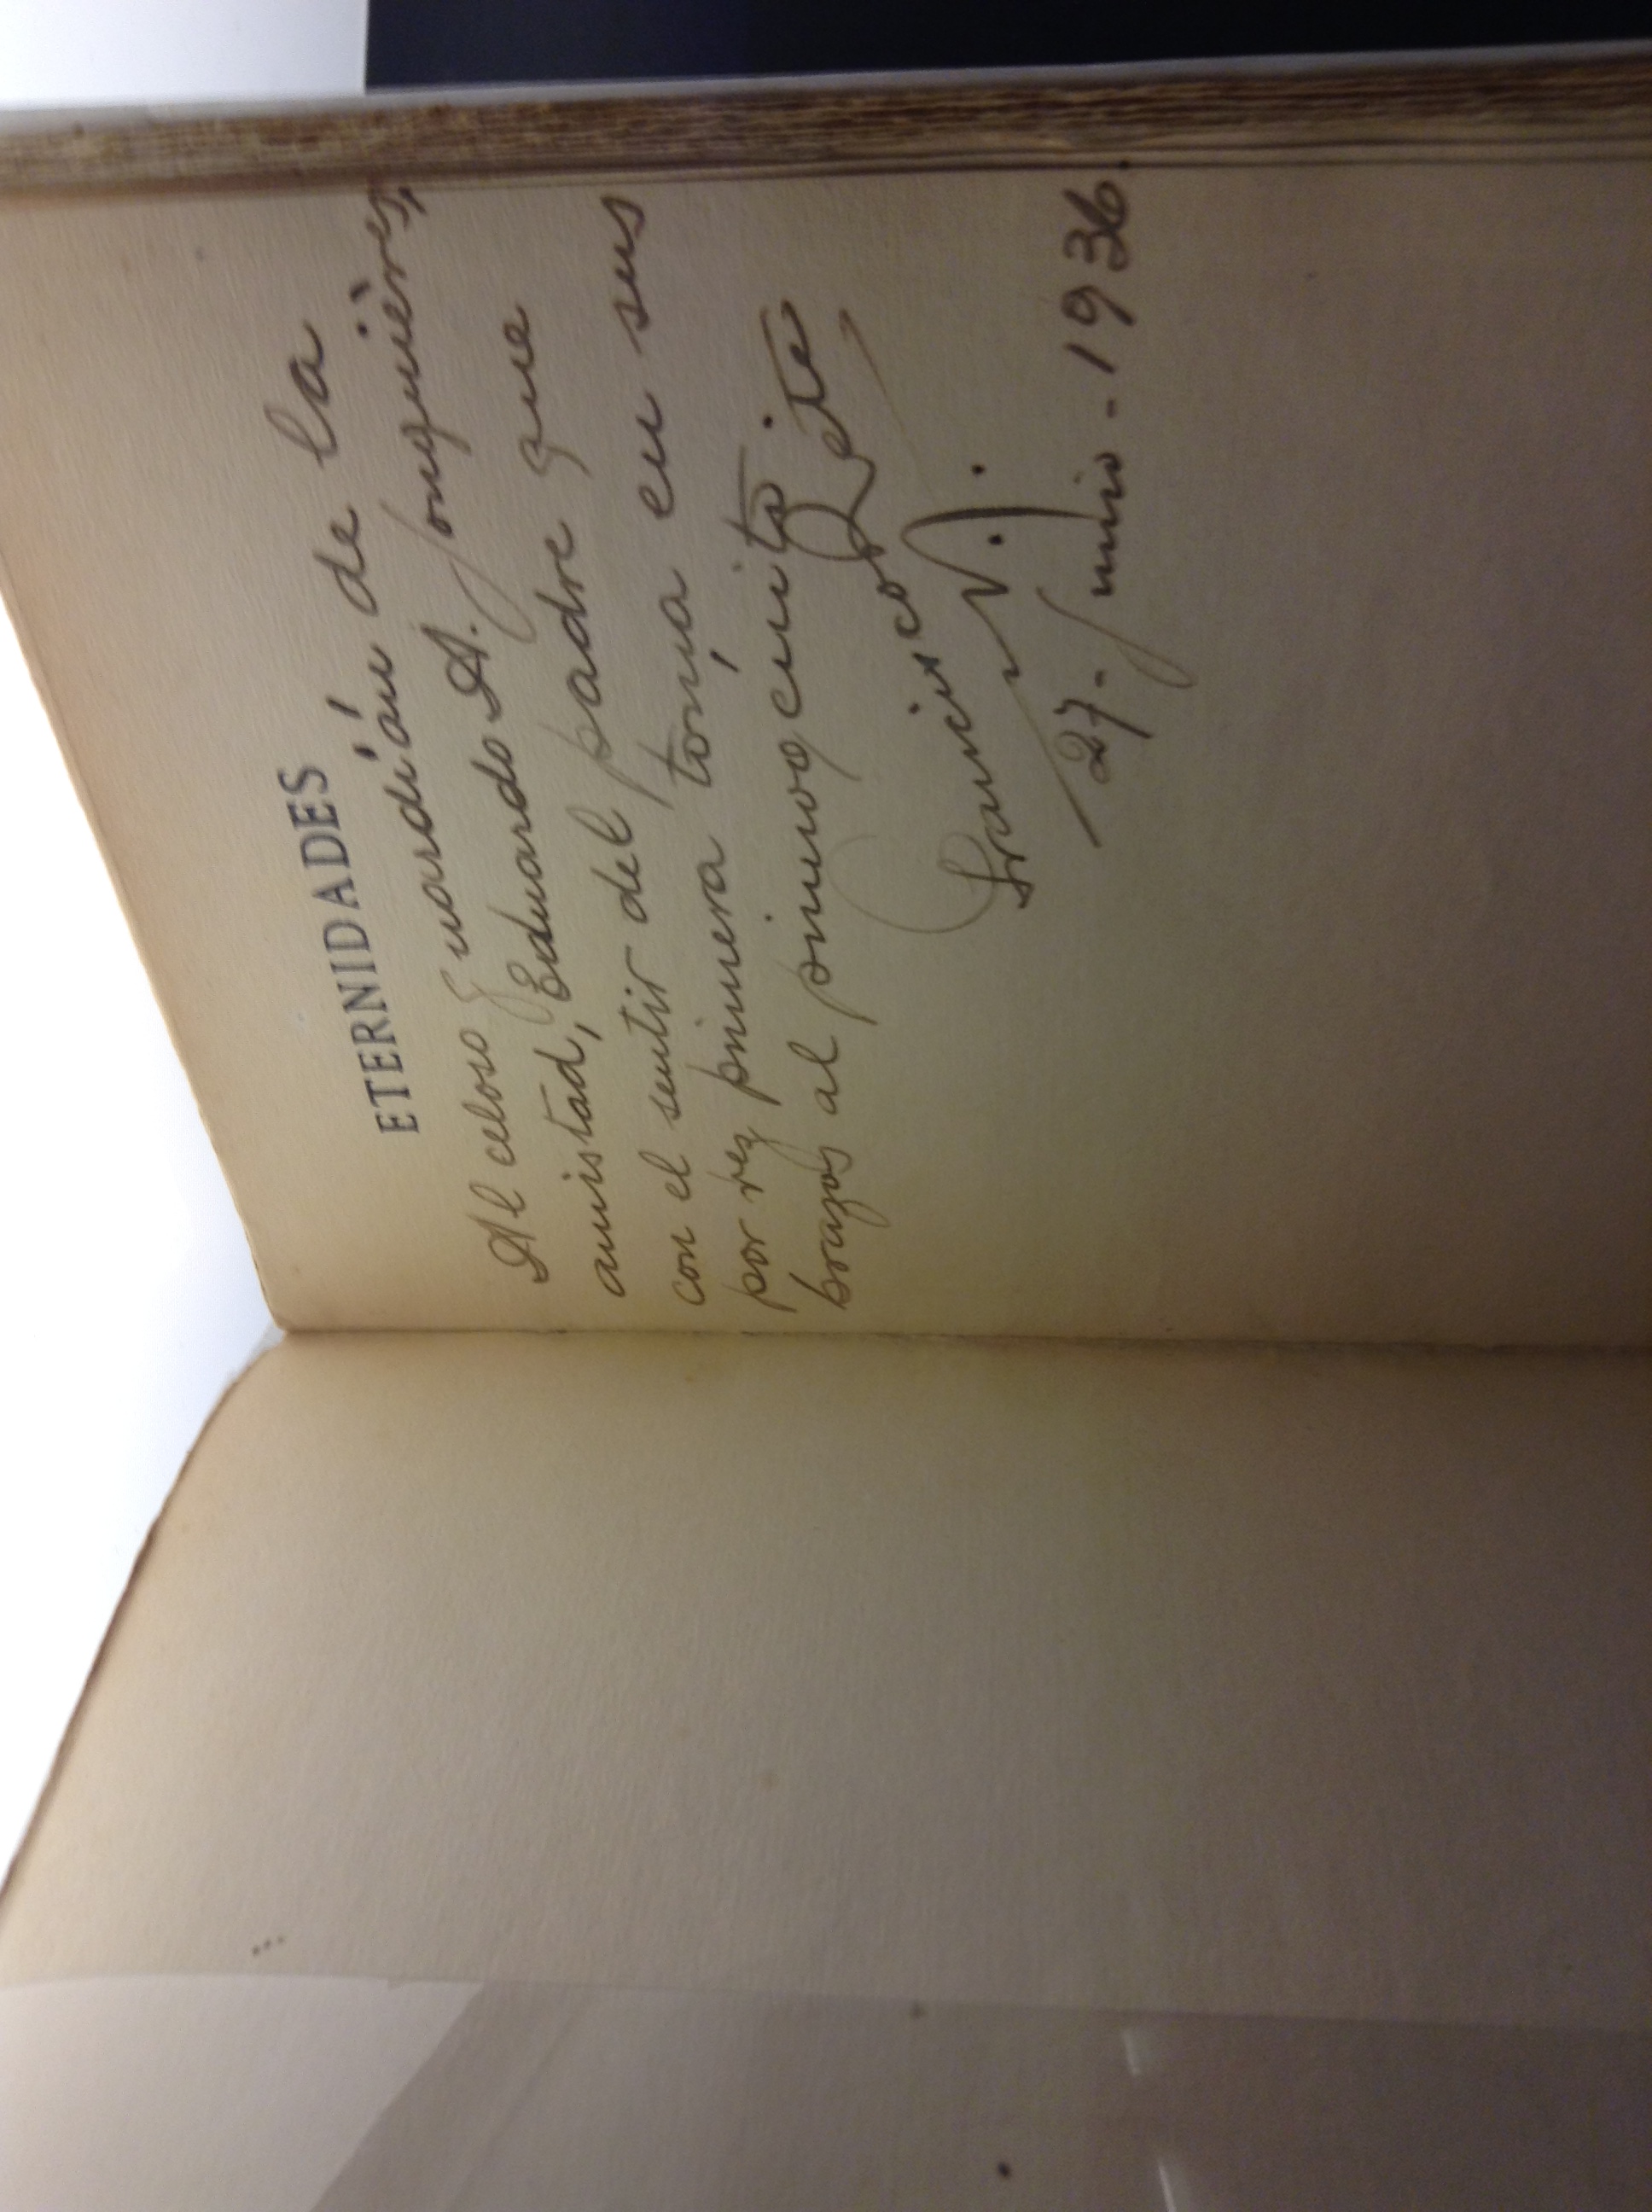 ETERNIDADES
Al celoso guardián de la
amistad, Eduardo A. Jonquières,
con el sentir del padre que
por vez primera toma en sus
brazos al primogenito
Francisco Reta
27-Junio-1936.